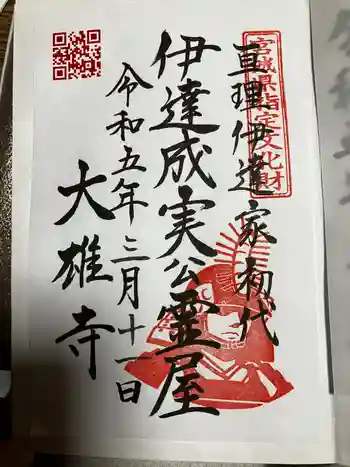 宮城県指定文化財
亘理伊達家初代
伊達成実公霊屋
令和五年三月十一日
大雄寺